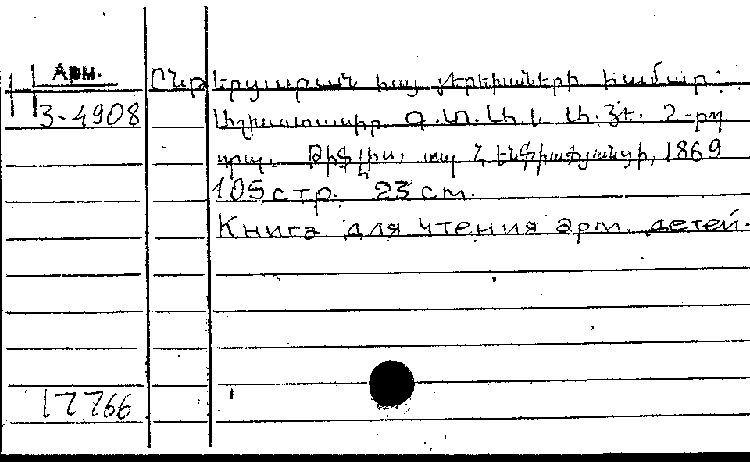 Арм.
3-4908
Ընթերցարան հայ մերեխաների համար:
Աշխատասիր. 2-րդ
տպ. Թիֆլիս, տպ Հ Էնֆիաճյանցի, 1869
105 стр. 23 cm.
Книга для чтения арм. детей.
17766